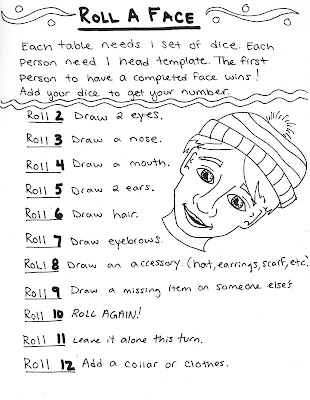 ROLL A FACE
Each table needs 1 set of dice. Each
person need 1 head template. The first
person to have a completed face wins!
Add your dice to get your number.
Roll 2 Draw 2 eyes.
Roll 3 Draw a nose.
Roll 4 Draw a mouth.
Roll 5 Draw 2 ears.
Roll 6 Draw hair.
Roll 7 Draw eyebrows.
Roll 8 Draw an accessory. (hat, earrings, scarf, etc)
Roll 9 Draw a missing item on someone else's
Roll 10 ROLL AGAIN!
Roll 11 Leave it alone this turn.
Roll 12 Add a collar or clothes.